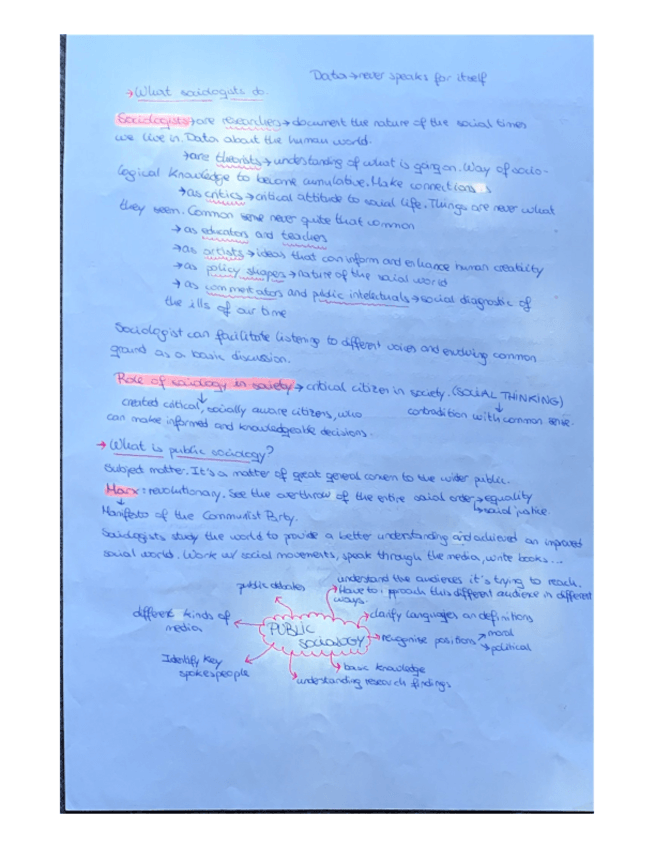 Data → never speaks for itself
→ What sociologists do.
Sociologists → are researchers → document the nature of the social times
we live in. Data about the human world.
→ are theorists → understanding of what is going on. Way of socio-
logical knowledge to become cumulative. Make connections
→ as critics → critical attitude to social life. Things are never what
they seen. Common sense never quite that common
→ as educators and teachers
→ as artists → ideas that can inform and enhance human creativity
→ as policy shapes → nature of the social world
→ as commentators and public intelectuals → social diagnostic of
the ills of our time
Sociologist can facilitate listening to different voices and evolving common
ground as a basic discussion.
Role of sociology in society → critical citizen in society. (SOCIAL THINKING)
created critical, socially aware citizens, who
contradition with common sense.
can make informed and knowledgeable decisions.
→ What is public sociology?
Subject matter. It's a matter of great general concern to the wider public.
Marx: revolutionary. See the overthrow of the entire social order → equality
↳ social justice.
Manifesto of the Communist Party.
Sociologists study the world to provide a better understanding and achieved an improved
social world. Work w/ social movements, speak through the media, write books...
public debates
understand the audiences it's trying to reach.
Have to approach this different audience in different
ways.
different kinds of
media
clarify languages an definitions
PUBLIC
SOCIOLOGY
recognise positions → moral
→ political
Identify key
spokespeople
basic knowledge
understanding research findings